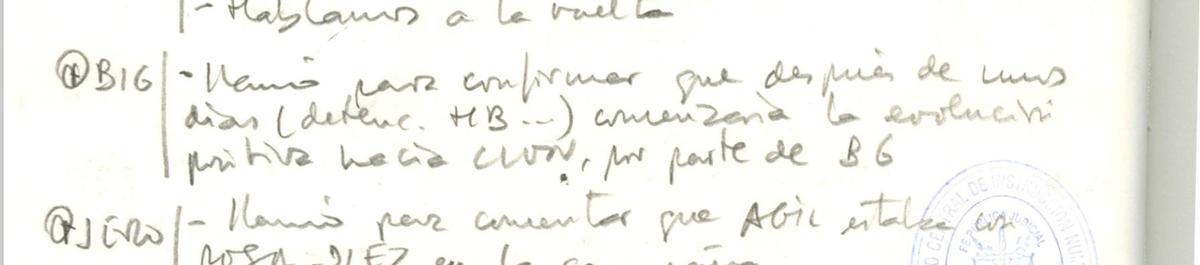 - Hablamos a la vuelta
BIG - Llamó para confirmar que después de unos
días (detenc. HB...) comenzaría la evolución
positiva hacia, por parte de BG
- Llamó para comentar que AGIL estaba con
ROSA DIEZ en la
CENTRAL DE INSTRUCCION